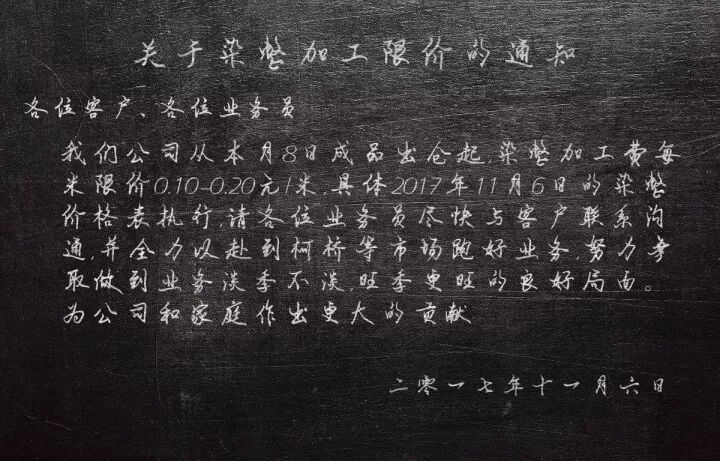 关于染整加工限价的通知
各位客户、各位业务员
我们公司从本月8日成品出仓起,染整加工费每
米限价0.10-0.20元/米,具体2017年11月6日的染整
价格表执行,请各位业务员尽快与客户联系沟
通,并全力以赴到柯桥等市场跑好业务,努力争
取做到业务淡季不淡,旺季更旺的良好局面。
为公司和家庭作出更大的贡献
二零一七年十一月六日